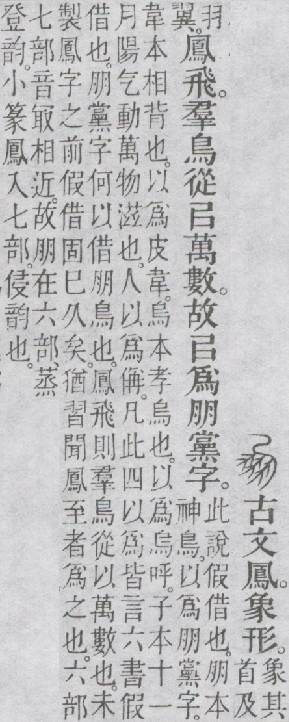 古文鳳。象形。象其
首及
羽
翼。鳳飛。羣鳥從㠯萬數。故㠯爲朋黨字。此說假借也。朋本
神鳥。以爲朋黨字。
韋本相背也。以爲皮韋。烏本孝烏也。以爲烏呼。子本十一
月陽气動萬物滋也。人以爲偁。凡此四以爲皆言六書假
借也。朋黨字何以借朋鳥也。鳳飛則羣鳥從以萬數也。未
製鳳字之前假借固已久矣。猶習聞鳳至者爲之也。六部
七部音冣相近。故朋在六部。蒸
登韵。小篆鳳入七部。侵韵也。